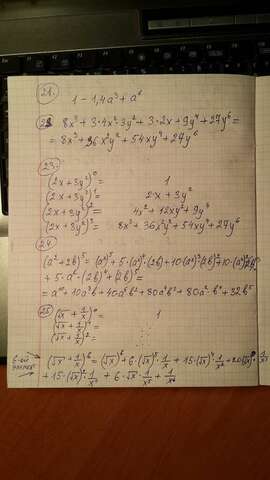 21.
1 - 1,4a³ + a⁶
22. 8x³ + 3·4x²·3y² + 3·2x·9y⁴ + 27y⁶ =
= 8x³ + 36x²y² + 54xy⁴ + 27y⁶
23.
(2x + 3y²)⁰ = 1
(2x + 3y²)¹ = 2x + 3y²
(2x + 3y²)² = 4x² + 12xy² + 9y⁴
(2x + 3y²)³ = 8x³ + 36x²y² + 54xy⁴ + 27y⁶
24.
(a² + 2b)⁵ = (a²)⁵ + 5·(a²)⁴·(2b) + 10·(a²)³·(2b)² + 10·(a²)²·(2b)³
+ 5·a²·(2b)⁴ + (2b)⁵ =
= a¹⁰ + 10a⁸b + 40a⁶b² + 80a⁴b³ + 80a²·b⁴ + 32b⁵
25. (√x + 1/x)⁰ = 1
(√x + 1/x)¹ =
(√x + 1/x)² =
(√x + 1/x)⁶ = (√x)⁶ + 6·(√x)⁵·1/x + 15·(√x)⁴·1/x² + 20(√x)³·1/x³
+ 15·(√x)²·1/x⁴ + 6·√x·1/x⁵ + 1/x⁶